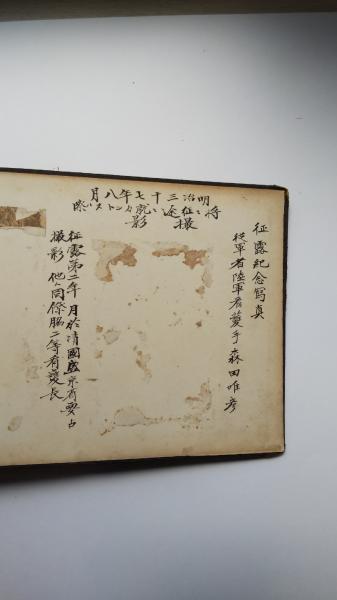 征露紀念寫真
従軍者陸軍看護手森田唯彦
明治三十七年八月
将ニ征途ニ就カントスル際
撮影
征露第二年 月於清國盛京省
撮影 他ハ同僚 二等看護長